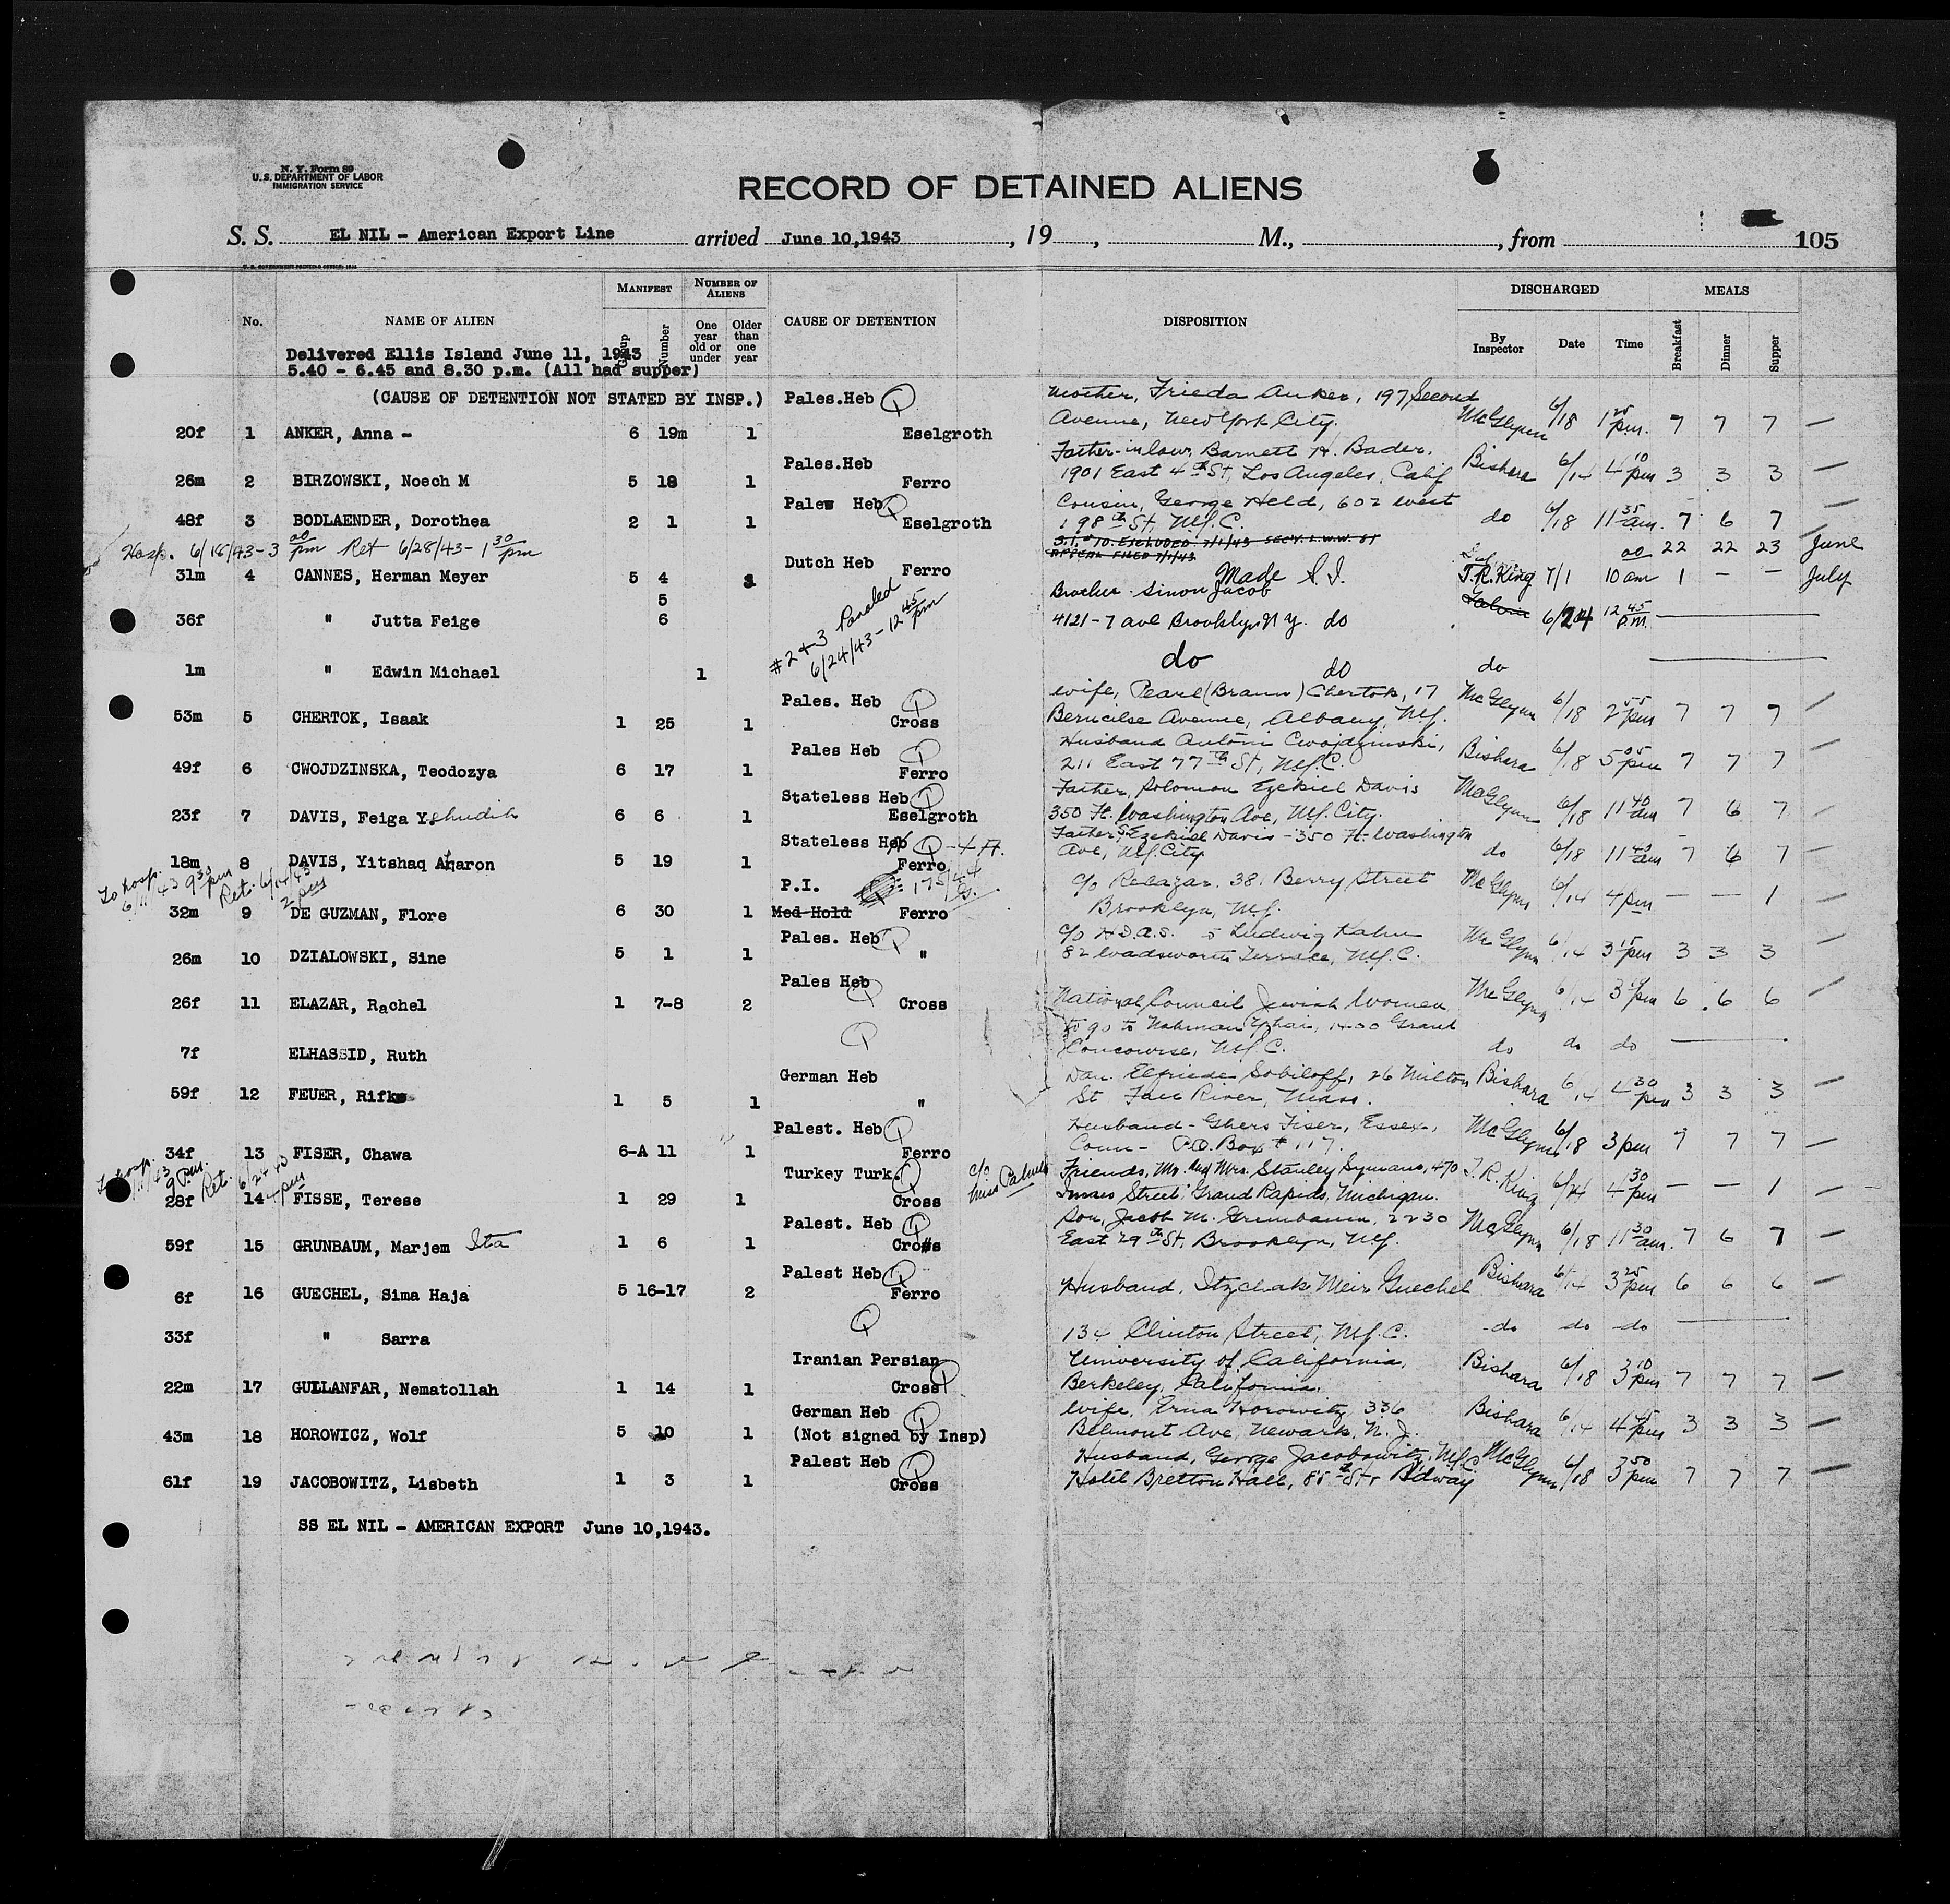 N. Y. Form 99
U.S. DEPARTMENT OF LABOR
IMMIGRATION SERVICE
RECORD OF DETAINED ALIENS
S. S. EL NIL - American Export Line arrived June 10,1943 , 19 , M., , from 105
MANIFEST NUMBER OF ALIENS DISCHARGED MEALS
No. NAME OF ALIEN Group Number One year old or under Older than one year CAUSE OF DETENTION DISPOSITION By Inspector Date Time Breakfast Dinner Supper
Delivered Ellis Island June 11, 1943
5.40 - 6.45 and 8.30 p.m. (All had supper)
(CAUSE OF DETENTION NOT STATED BY INSP.) Pales.Heb Q Mother, Frieda Anker, 197 Second
20f 1 ANKER, Anna - 6 19m 1 Eselgroth Avenue, New York City. McGlynn 6/18 1 25 pm. 7 7 7 —
Pales.Heb Father-in-law, Barnett H. Bader,
26m 2 BIRZOWSKI, Noech M 5 18 1 Ferro 1901 East 4th St, Los Angeles, Calif Bishara 6/14 4 10 pm 3 3 3 —
Palew Heb Q Cousin, George Held, 602 West
48f 3 BODLAENDER, Dorothea 2 1 1 Eselgroth 198th St, N.Y.C. do 6/18 11 35 am. 7 6 7 —
Hosp. 6/18/43-3 00 pm Ret 6/28/43-1 30 pm S.I. #10. EXCLUDED 7/1/43 SEC'Y. L.W.W. ST 22 22 23 June
APPEAL FILED 7/1/43
Dutch Heb
31m 4 CANNES, Herman Meyer 5 4 Ferro Made S I. T.R. King 7/1 10 00 am 1 - - July
5 Brother Simon Jacob
36f " Jutta Feige 6 4121-7 ave Brooklyn N y. do 6/24 12 45 P.M. —
#2+3 Paroled
6/24/43-12 45 pm
1m " Edwin Michael 1 do do do —
Pales. Heb Q Wife, Pearl (Braun) Chertok, 17
53m 5 CHERTOK, Isaak 1 25 1 Cross Avenue, Albany, N.Y. McGlynn 6/18 2 55 pm 7 7 7 —
Pales Heb Q Husband Antoni Cwojdzinski,
49f 6 CWOJDZINSKA, Teodozya 6 17 1 Ferro 211 East 77th St, N.Y.C. Bishara 6/18 5 05 pm 7 7 7 —
Stateless Heb Q Father, Solomon Ezekiel Davis
23f 7 DAVIS, Feiga Yehudith 6 6 1 Eselgroth 350 Ft. Washington Ave, N.Y. City. McGlynn 6/18 11 40 am 7 6 7 —
Stateless Heb Q - 4 H. Father S. Ezekiel Davis - 350 Ft. Washington
18m 8 DAVIS, Yitshaq Aharon 5 19 1 Ferro Ave, N.Y. City do 6/18 11 40 am 7 6 7 —
To hosp. 6/11/43 9 30 pm Ret. 6/14/43 2 pm
P.I. c/o 38 Berry Street
32m 9 DE GUZMAN, Flore 6 30 1 Med Hold Ferro Brooklyn, N.Y. McGlynn 6/14 4 pm — — 1 —
Pales. Heb Q c/o Ludwig Kahn
26m 10 DZIALOWSKI, Sine 5 1 1 " 82 Wadsworth Terrace, N.Y.C. McGlynn 6/14 3 15 pm 3 3 3 —
Pales Heb Q
26f 11 ELAZAR, Rachel 1 7-8 2 Cross National Council Jewish Women McGlynn 6/14 3 pm 6 6 6 —
Q to go to Nahman 1400 Grand
7f ELHASSID, Ruth Concourse, N.Y.C. do do do —
German Heb Dau. Elfriede Sobiloff, 26 Milton
59f 12 FEUER, Rifka 1 5 1 " St Fall River, Mass. Bishara 6/14 4 30 pm 3 3 3 —
Palest. Heb Q Husband - Fiser, Essex,
34f 13 FISER, Chawa 6-A 11 1 Ferro Conn - P.O. Box #117. McGlynn 6/18 3 pm 7 7 7 —
To hosp. 6/11/43 9 pm. Ret. 6/24/43 4 pm
Turkey Turk Q c/o Miss Palmer Friends, Mr. and Mrs. Stanley Symans, 470
28f 14 FISSE, Terese 1 29 1 Cross Street, Grand Rapids, Michigan. T.R. King 6/24 4 30 pm — — 1 —
Palest. Heb Q Son, Jacob M. Grunbaum, 2230
59f 15 GRUNBAUM, Marjem Ita 1 6 1 Cross East 29th St, Brooklyn, N.Y. McGlynn 6/18 11 30 am. 7 6 7 —
Palest Heb Q
6f 16 GUECHEL, Sima Haja 5 16-17 2 Ferro Husband, Itzchak Meir Guechel Bishara 6/14 3 25 pm 6 6 6 —
Q
33f " Sarra 134 Clinton Street, N.Y.C. do do do —
Iranian Persian Q University of California,
22m 17 GULLANFAR, Nematollah 1 14 1 Cross Berkeley, California. Bishara 6/18 3 10 pm 7 7 7 —
German Heb Q Wife, Erna Horowitz, 336
43m 18 HOROWICZ, Wolf 5 10 1 (Not signed by Insp) Belmont Ave, Newark, N.J. Bishara 6/14 4 45 pm 3 3 3 —
Palest Heb Q Husband, George Jacobowitz, N.Y.C.
61f 19 JACOBOWITZ, Lisbeth 1 3 1 Cross Hotel Bretton Hall, 85th St & Bdway McGlynn 6/18 3 50 pm 7 7 7 —
SS EL NIL - AMERICAN EXPORT June 10,1943.